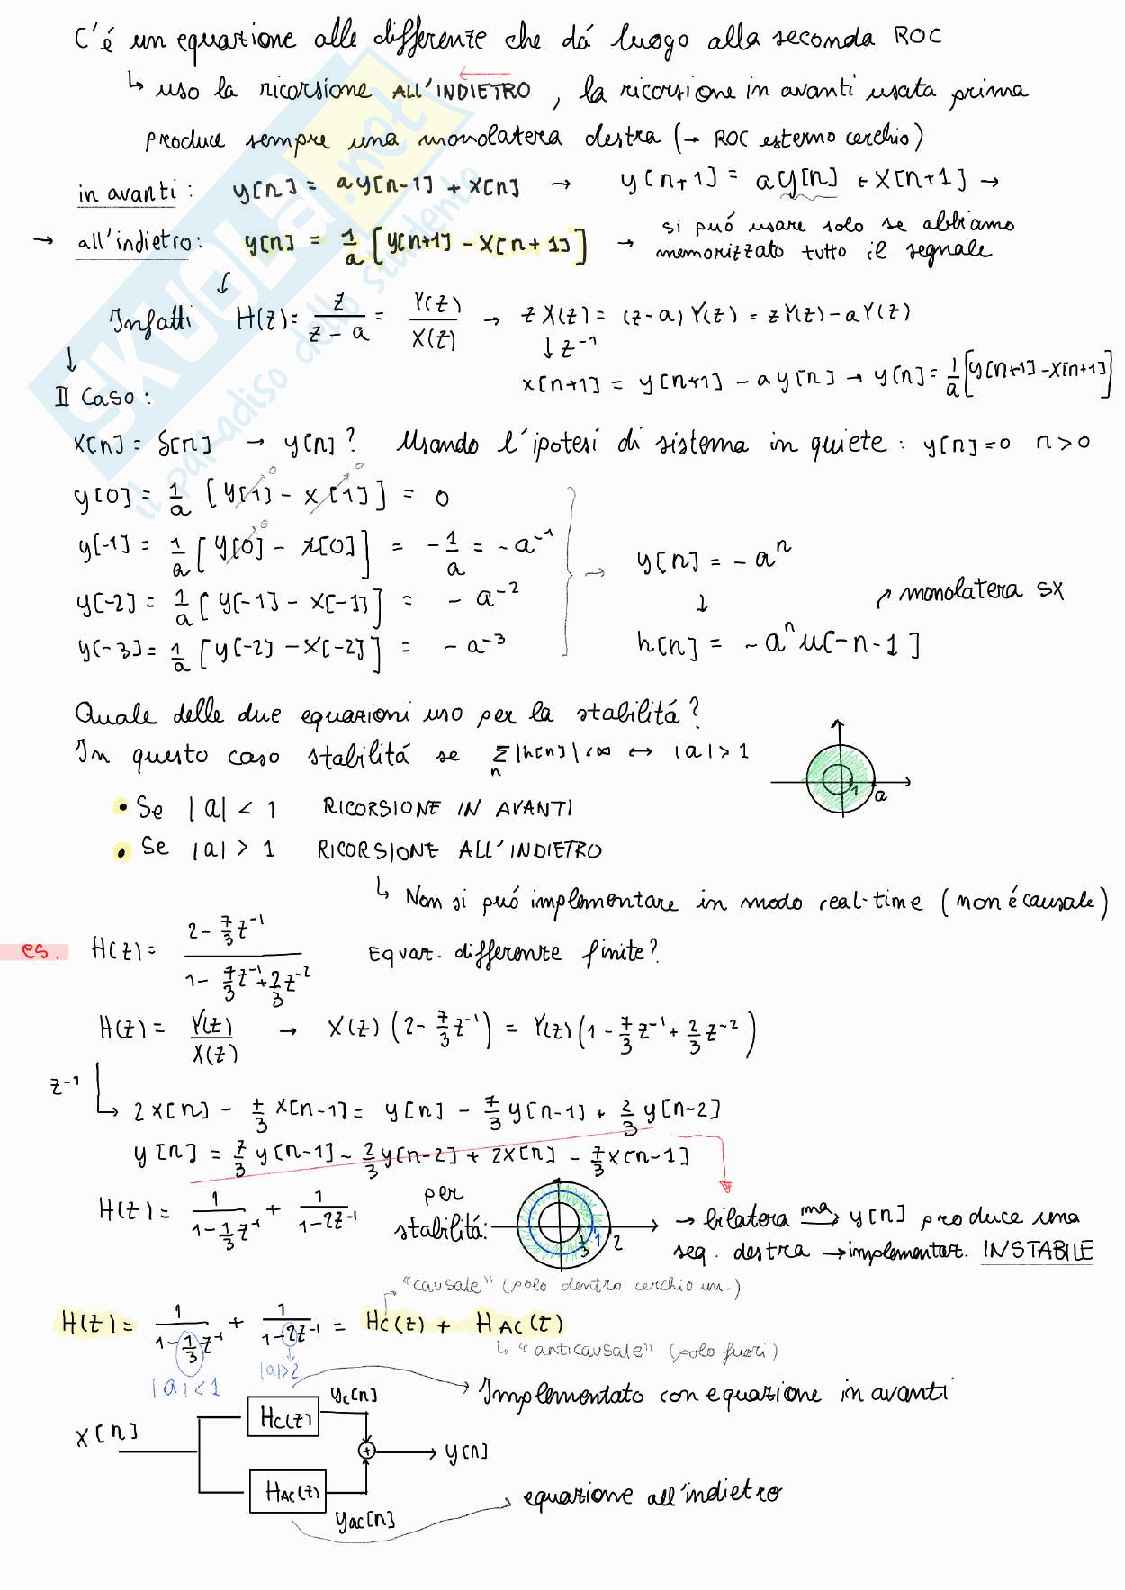 C'é un equazione alle differenze che dá luogo alla seconda ROC
↳ uso la ricorsione ALL'INDIETRO, la ricorsione in avanti usata prima
produce sempre una monolatera destra (→ ROC esterno cerchio)
in avanti: y[n] = ay[n-1] + x[n] → y[n+1] = ay[n] + x[n+1] →
→ all'indietro: y[n] = 1/a [y[n+1] - x[n+1]] → si puó usare solo se abbiamo
memorizzato tutto il segnale
Infatti H(z) = z/(z-a) = Y(z)/X(z) → zX(z) = (z-a)Y(z) = zY(z) - aY(z)
↓ z⁻¹
x[n+1] = y[n+1] - ay[n] → y[n] = 1/a [y[n+1] - x[n+1]]
II Caso:
x[n] = δ[n] → y[n]? Usando l'ipotesi di sistema in quiete: y[n]=0 n>0
y[0] = 1/a [y[1] - x[1]] = 0
y[-1] = 1/a [y[0] - x[0]] = -1/a = -a⁻¹
y[-2] = 1/a [y[-1] - x[-1]] = -a⁻²
y[-3] = 1/a [y[-2] - x[-2]] = -a⁻³
→ y[n] = -aⁿ
↓ ↗ monolatera SX
h[n] = -aⁿ u[-n-1]
Quale delle due equazioni uso per la stabilitá?
In questo caso stabilitá se Σn |h[n]| < ∞ ↔ |a| > 1
1 a
• Se |a| < 1 RICORSIONE IN AVANTI
• Se |a| > 1 RICORSIONE ALL'INDIETRO
↳ Non si puó implementare in modo real-time (non é causale)
es. H(z) = (2 - 7/3 z⁻¹)/(1 - 7/3 z⁻¹ + 2/3 z⁻²) Equaz. differenze finite?
H(z) = Y(z)/X(z) → X(z) (2 - 7/3 z⁻¹) = Y(z) (1 - 7/3 z⁻¹ + 2/3 z⁻²)
z⁻¹
↳ 2x[n] - 7/3 x[n-1] = y[n] - 7/3 y[n-1] + 2/3 y[n-2]
y[n] = 7/3 y[n-1] - 2/3 y[n-2] + 2x[n] - 7/3 x[n-1]
H(z) = 1/(1 - 1/3 z⁻¹) + 1/(1 - 2z⁻¹) per stabilitá: 1/3 1 2 → bilatera ma→ y[n] produce una
seq. destra → implementaz. INSTABILE
"causale" (polo dentro cerchio un.)
H(z) = 1/(1 - 1/3 z⁻¹) + 1/(1 - 2z⁻¹) = Hc(z) + HAC(z)
↳ "anticausale" (polo fuori)
|a|<1 |a|>2
yc[n] → Implementato con equazione in avanti
x[n] Hc(z)
+ → y[n]
HAC(z) → equazione all'indietro
yac[n]
SKUOLA.net
il paradiso dello studente